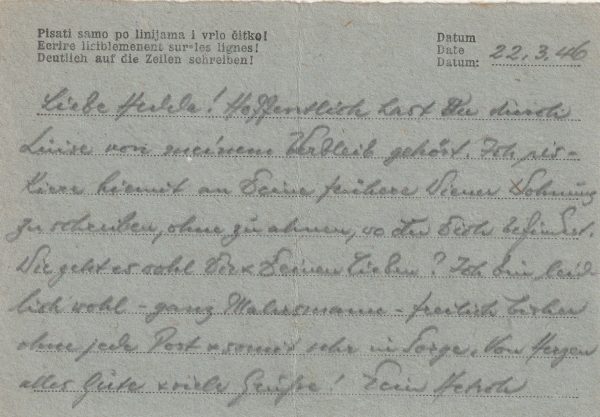 Pisati samo po linijama i vrlo čitko!
Ecrire lisiblemenent sur les lignes!
Deutlich auf die Zeilen schreiben!
Datum
Date
Datum: 22.3.46
Liebe Hedda! Hoffentlich hast Du durch
Luise von meinem Verbleib gehört. Ich ris-
kiere hiemit an Deine frühere Wiener Wohnung
zu schreiben, ohne zu ahnen, wo Du Dich befindest.
Wie geht es wohl Dir & Deinen Lieben? Ich bin leid-
lich wohl - ganz - freilich bisher
ohne jede Post & somit sehr in Sorge. Von Herzen
alles Gute & viele Grüße! Dein